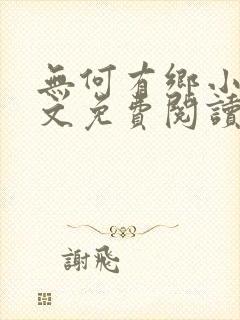 無何有鄉小
文免費閱讀
謝飛